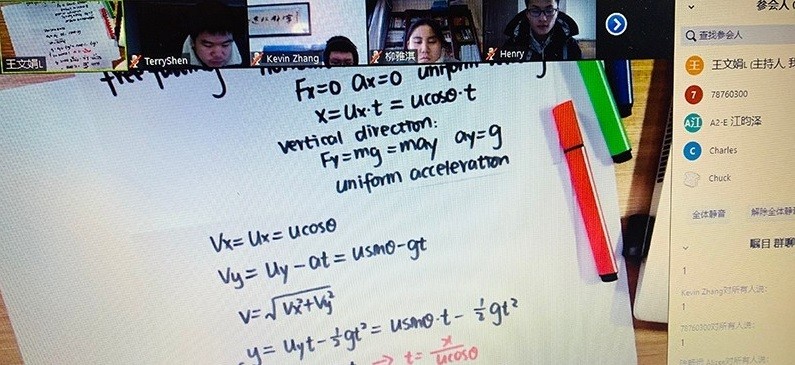 王文娟L
TerryShen
Kevin Zhang
柳雅淇
Henry
free falling
Fx=0 ax=0 uniform
x=Ux·t = ucosθ·t
vertical direction:
Fy=mg=may ay=g
uniform acceleration
Vx=Ux=ucosθ
Vy=Uy-at=usinθ-gt
v=√Vx²+Vy²
y=Uyt-½gt²=usinθ·t-½gt²
→ t= x/ucosθ
参会人
查找参会人
王 王文娟L (主持人, 我
7 78760300
A江 A2-E 江昀泽
C Charles
Chuck
全体静音
解除全体静音
瞩目 群聊
1
Kevin Zhang对所有人说:
1
78760300对所有人说:
1